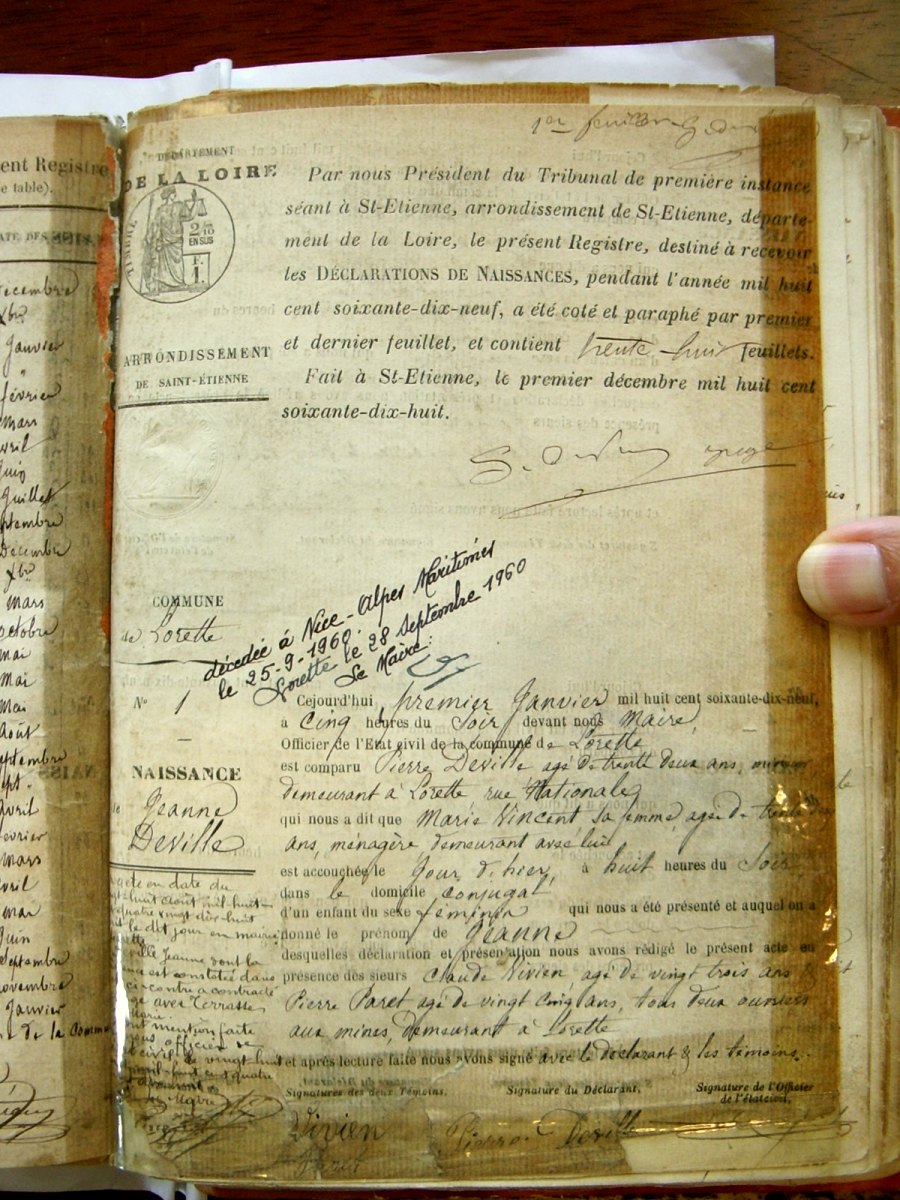 ent Registre
e table).
ATE DES
écembre
Xbre
Janvier
"
février
Mars
avril
Juin
Juillet
eptembre
Décembre
Xbre
Mars
octobre
Mai
Mai
Mai
Août
eptembre
Sept.
Avril
évrier
Mars
Avril
Mai
Juin
Septembre
Novembre
Janvier
de la Comm
1er feuillet
DÉPARTEMENT
DE LA LOIRE
TIMBRE
2/10
EN SUS
F.
1.
ARRONDISSEMENT
DE SAINT-ÉTIENNE
Par nous Président du Tribunal de première instance
séant à St-Etienne, arrondissement de St-Etienne, départe-
ment de la Loire, le présent Registre, destiné à recevoir
les DÉCLARATIONS DE NAISSANCES, pendant l'année mil huit
cent soixante-dix-neuf, a été coté et paraphé par premier
et dernier feuillet, et contient trente huit feuillets.
Fait à St-Etienne, le premier décembre mil huit cent
soixante-dix-huit.
COMMUNE
de Lorette
décedée à Nice - Alpes Maritimes
le 25-9-1960.
Lorette le 28 Septembre 1960
Le Maire:
No 1
NAISSANCE
de Jeanne
Deville
Cejourd'hui premier Janvier mil huit cent soixante-dix-neuf,
à Cinq heures du Soir devant nous Maire
Officier de l'Etat civil de la commune de Lorette
est comparu Pierre Deville agé de trente deux ans, mineur
demeurant à Lorette rue Nationale
qui nous a dit que Marie Vincent sa femme, agée de trente
ans, ménagère, demeurant avec lui
est accouchée le Jour d'hier, à huit heures du Soir
dans le domicile conjugal
d'un enfant du sexe féminin qui nous a été présenté et auquel on a
donné le prénom de Jeanne
desquelles déclaration et présentation nous avons rédigé le présent acte en
présence des sieurs Claude Vivien agé de vingt trois ans
Pierre Paret agé de vingt cinq ans, tous deux ouvriers
aux mines, demeurant à Lorette
et après lecture faite nous avons signé avec le déclarant & les témoins.
Signatures des deux Témoins. Signature du Déclarant. Signature de l'Officier
de l'état civil.
Vivien Pierre Deville
Paret
acte en date du
huit août mil huit
quatre vingt dix-huit
le dit jour en mairie
ville Jeanne dont la
est constatée dans
ci-contre a contracté
avec Terrasse
mention faite
officier de
civil, le vingt huit
huit cent quatre